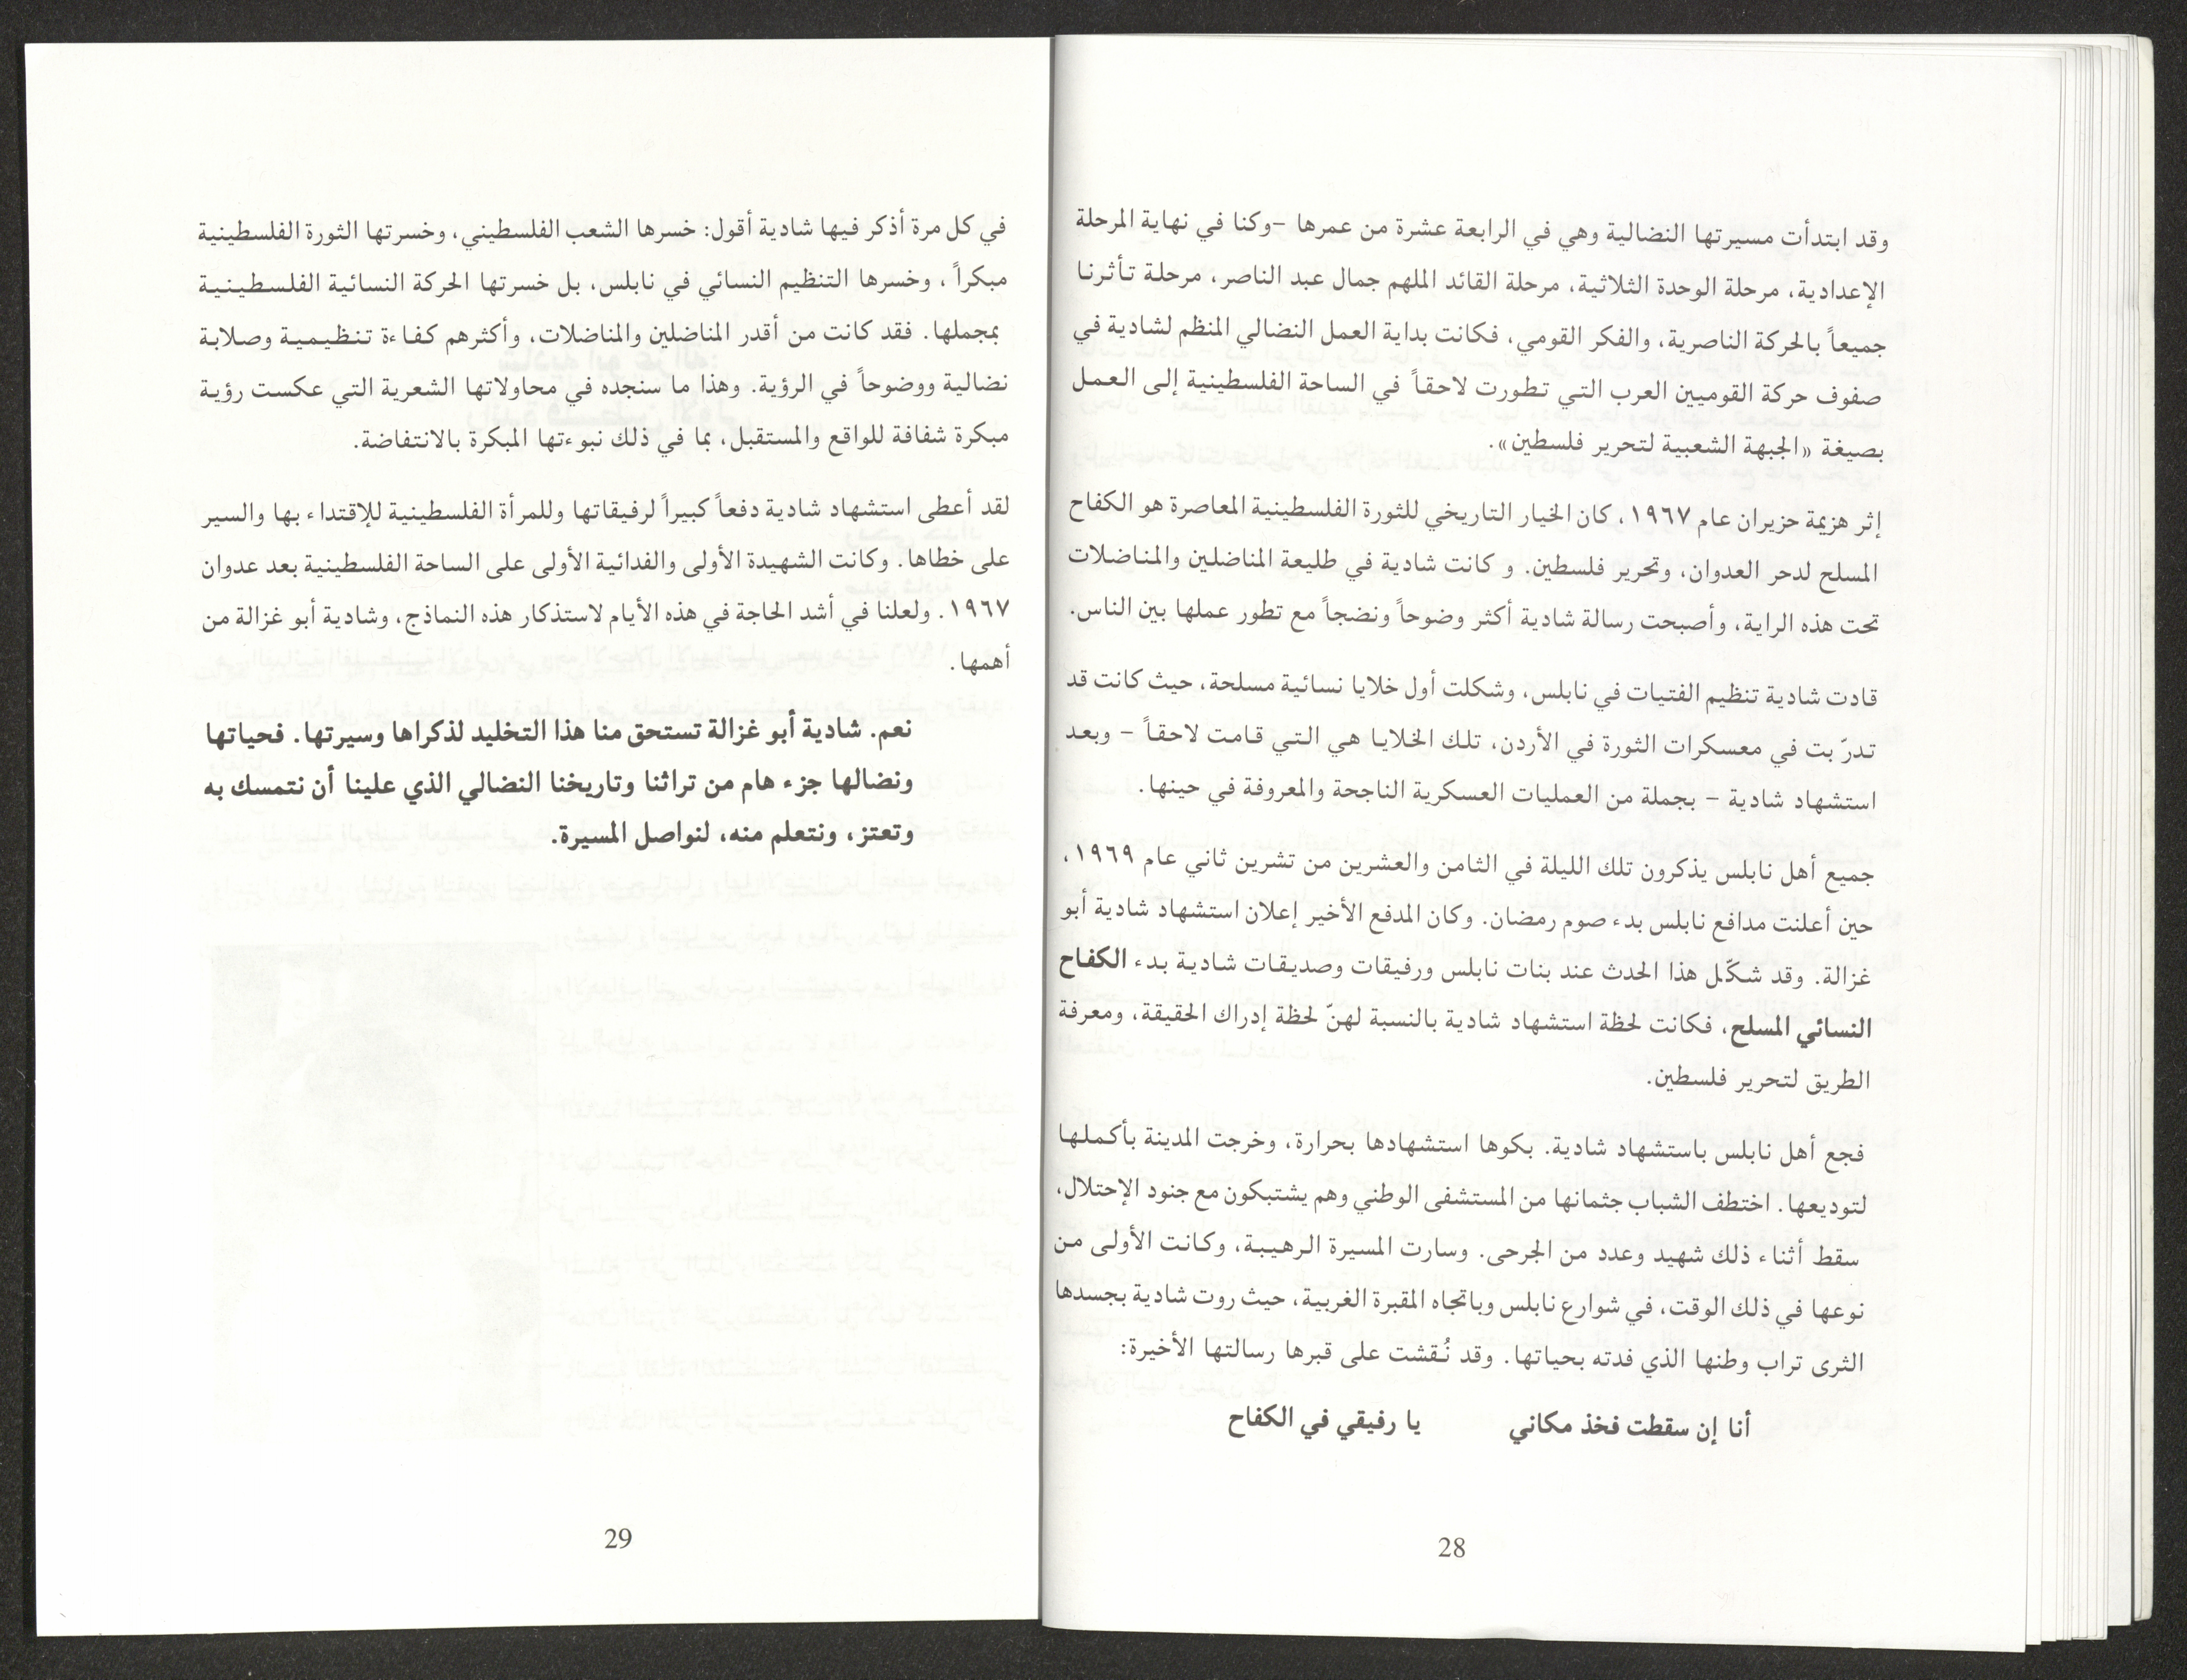 وقد ابتدأت مسيرتها النضالية وهي في الرابعة عشرة من عمرها -وكنا في نهاية المرحلة
الإعدادية، مرحلة الوحدة الثلاثية، مرحلة القائد الملهم جمال عبد الناصر، مرحلة تأثرنا
جميعاً بالحركة الناصرية، والفكر القومي، فكانت بداية العمل النضالي المنظم لشادية في
صفوف حركة القوميين العرب التي تطورت لاحقاً في الساحة الفلسطينية إلى العمل
بصيغة «الجبهة الشعبية لتحرير فلسطين».
إثر هزيمة حزيران عام ١٩٦٧، كان الخيار التاريخي للثورة الفلسطينية المعاصرة هو الكفاح
المسلح لدحر العدوان، وتحرير فلسطين. و كانت شادية في طليعة المناضلين والمناضلات
تحت هذه الراية، وأصبحت رسالة شادية أكثر وضوحاً ونضجاً مع تطور عملها بين الناس.
قادت شادية تنظيم الفتيات في نابلس، وشكلت أول خلايا نسائية مسلحة، حيث كانت قد
تدرّبت في معسكرات الثورة في الأردن، تلك الخلايا هي التي قامت لاحقاً - وبعد
استشهاد شادية - بجملة من العمليات العسكرية الناجحة والمعروفة في حينها.
جميع أهل نابلس يذكرون تلك الليلة في الثامن والعشرين من تشرين ثاني عام ١٩٦٩،
حين أعلنت مدافع نابلس بدء صوم رمضان. وكان المدفع الأخير إعلان استشهاد شادية أبو
غزالة. وقد شكّل هذا الحدث عند بنات نابلس ورفيقات وصديقات شادية بدء الكفاح
النسائي المسلح، فكانت لحظة استشهاد شادية بالنسبة لهنّ لحظة إدراك الحقيقة، ومعرفة
الطريق لتحرير فلسطين.
فجع أهل نابلس باستشهاد شادية. بكوها استشهادها بحرارة، وخرجت المدينة بأكملها
لتوديعها. اختطف الشباب جثمانها من المستشفى الوطني وهم يشتبكون مع جنود الإحتلال،
سقط أثناء ذلك شهيد وعدد من الجرحى. وسارت المسيرة الرهيبة، وكانت الأولى من
نوعها في ذلك الوقت، في شوارع نابلس وباتجاه المقبرة الغربية، حيث روت شادية بجسدها
الثرى تراب وطنها الذي فدته بحياتها. وقد نُقشت على قبرها رسالتها الأخيرة:
أنا إن سقطت فخذ مكاني يا رفيقي في الكفاح
28
في كل مرة أذكر فيها شادية أقول: خسرها الشعب الفلسطيني، وخسرتها الثورة الفلسطينية
مبكراً، وخسرها التنظيم النسائي في نابلس، بل خسرتها الحركة النسائية الفلسطينية
بمجملها. فقد كانت من أقدر المناضلين والمناضلات، وأكثرهم كفاءة تنظيمية وصلابة
نضالية ووضوحاً في الرؤية. وهذا ما سنجده في محاولاتها الشعرية التي عكست رؤية
مبكرة شفافة للواقع والمستقبل، بما في ذلك نبوءتها المبكرة بالانتفاضة.
لقد أعطى استشهاد شادية دفعاً كبيراً لرفيقاتها وللمرأة الفلسطينية للإقتداء بها والسير
على خطاها. وكانت الشهيدة الأولى والفدائية الأولى على الساحة الفلسطينية بعد عدوان
١٩٦٧. ولعلنا في أشد الحاجة في هذه الأيام لاستذكار هذه النماذج، وشادية أبو غزالة من
أهمها.
نعم. شادية أبو غزالة تستحق منا هذا التخليد لذكراها وسيرتها. فحياتها
ونضالها جزء هام من تراثنا وتاريخنا النضالي الذي علينا أن نتمسك به
وتعتز، ونتعلم منه، لنواصل المسيرة.
29